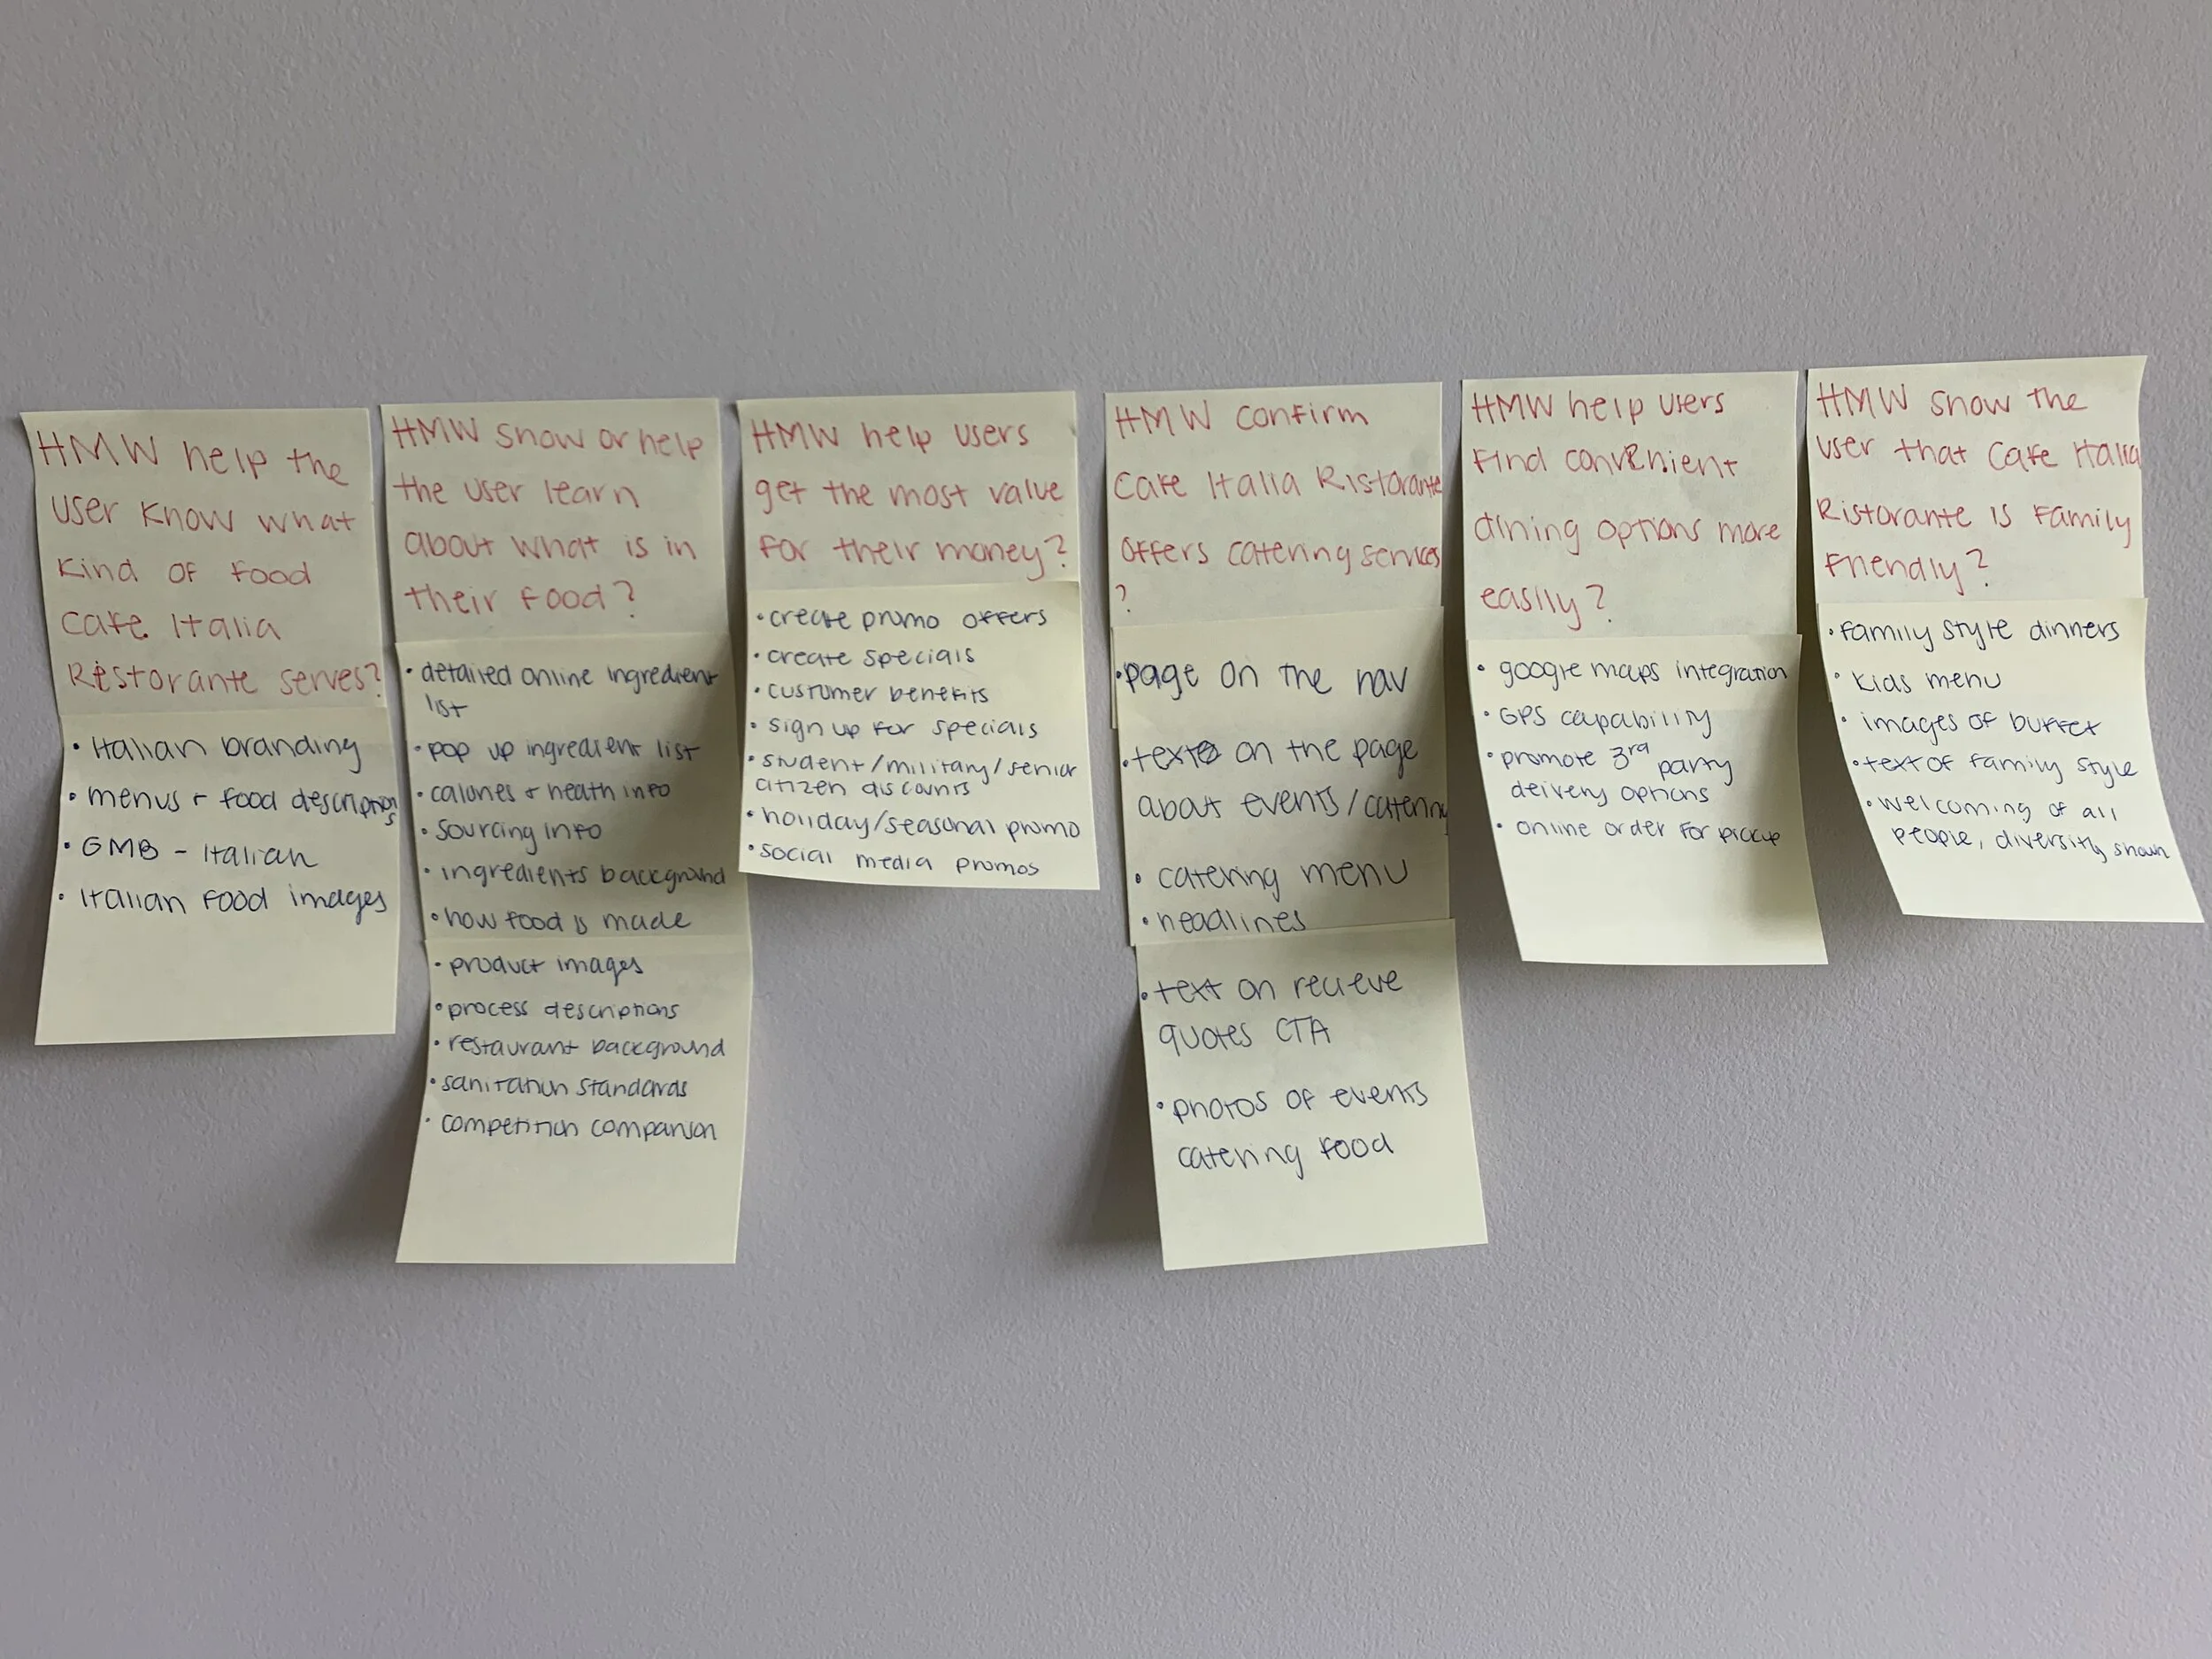 HMW help the
user know what
kind of food
Cafe Italia
Ristorante serves?
• Italian branding
• menus + food descriptions
• GMB - Italian
• Italian food images
HMW show or help
the user learn
about what is in
their food?
• detailed online ingredient
list
• pop up ingredient list
• calories + health info
• sourcing info
• ingredients background
• how food is made
• product images
• process descriptions
• restaurant background
• sanitation standards
• competition comparison
HMW help users
get the most value
for their money?
• create promo offers
• create specials
• customer benefits
• sign up for specials
• student/military/senior
citizen discounts
• holiday/seasonal promo
• social media promos
HMW confirm
Cafe Italia Ristorante
offers catering services
?
• page on the nav
• text on the page
about events/catering
• catering menu
• headlines
• text on recieve
quotes CTA
• photos of events
catering food
HMW help users
find convenient
dining options more
easily?
• google maps integration
• GPS capability
• promote 3rd party
delivery options
• online order for pickup
HMW show the
user that Cafe Italia
Ristorante is family
friendly?
• family style dinners
• kids menu
• images of buffet
• text of family style
• welcoming of all
people, diversity shown